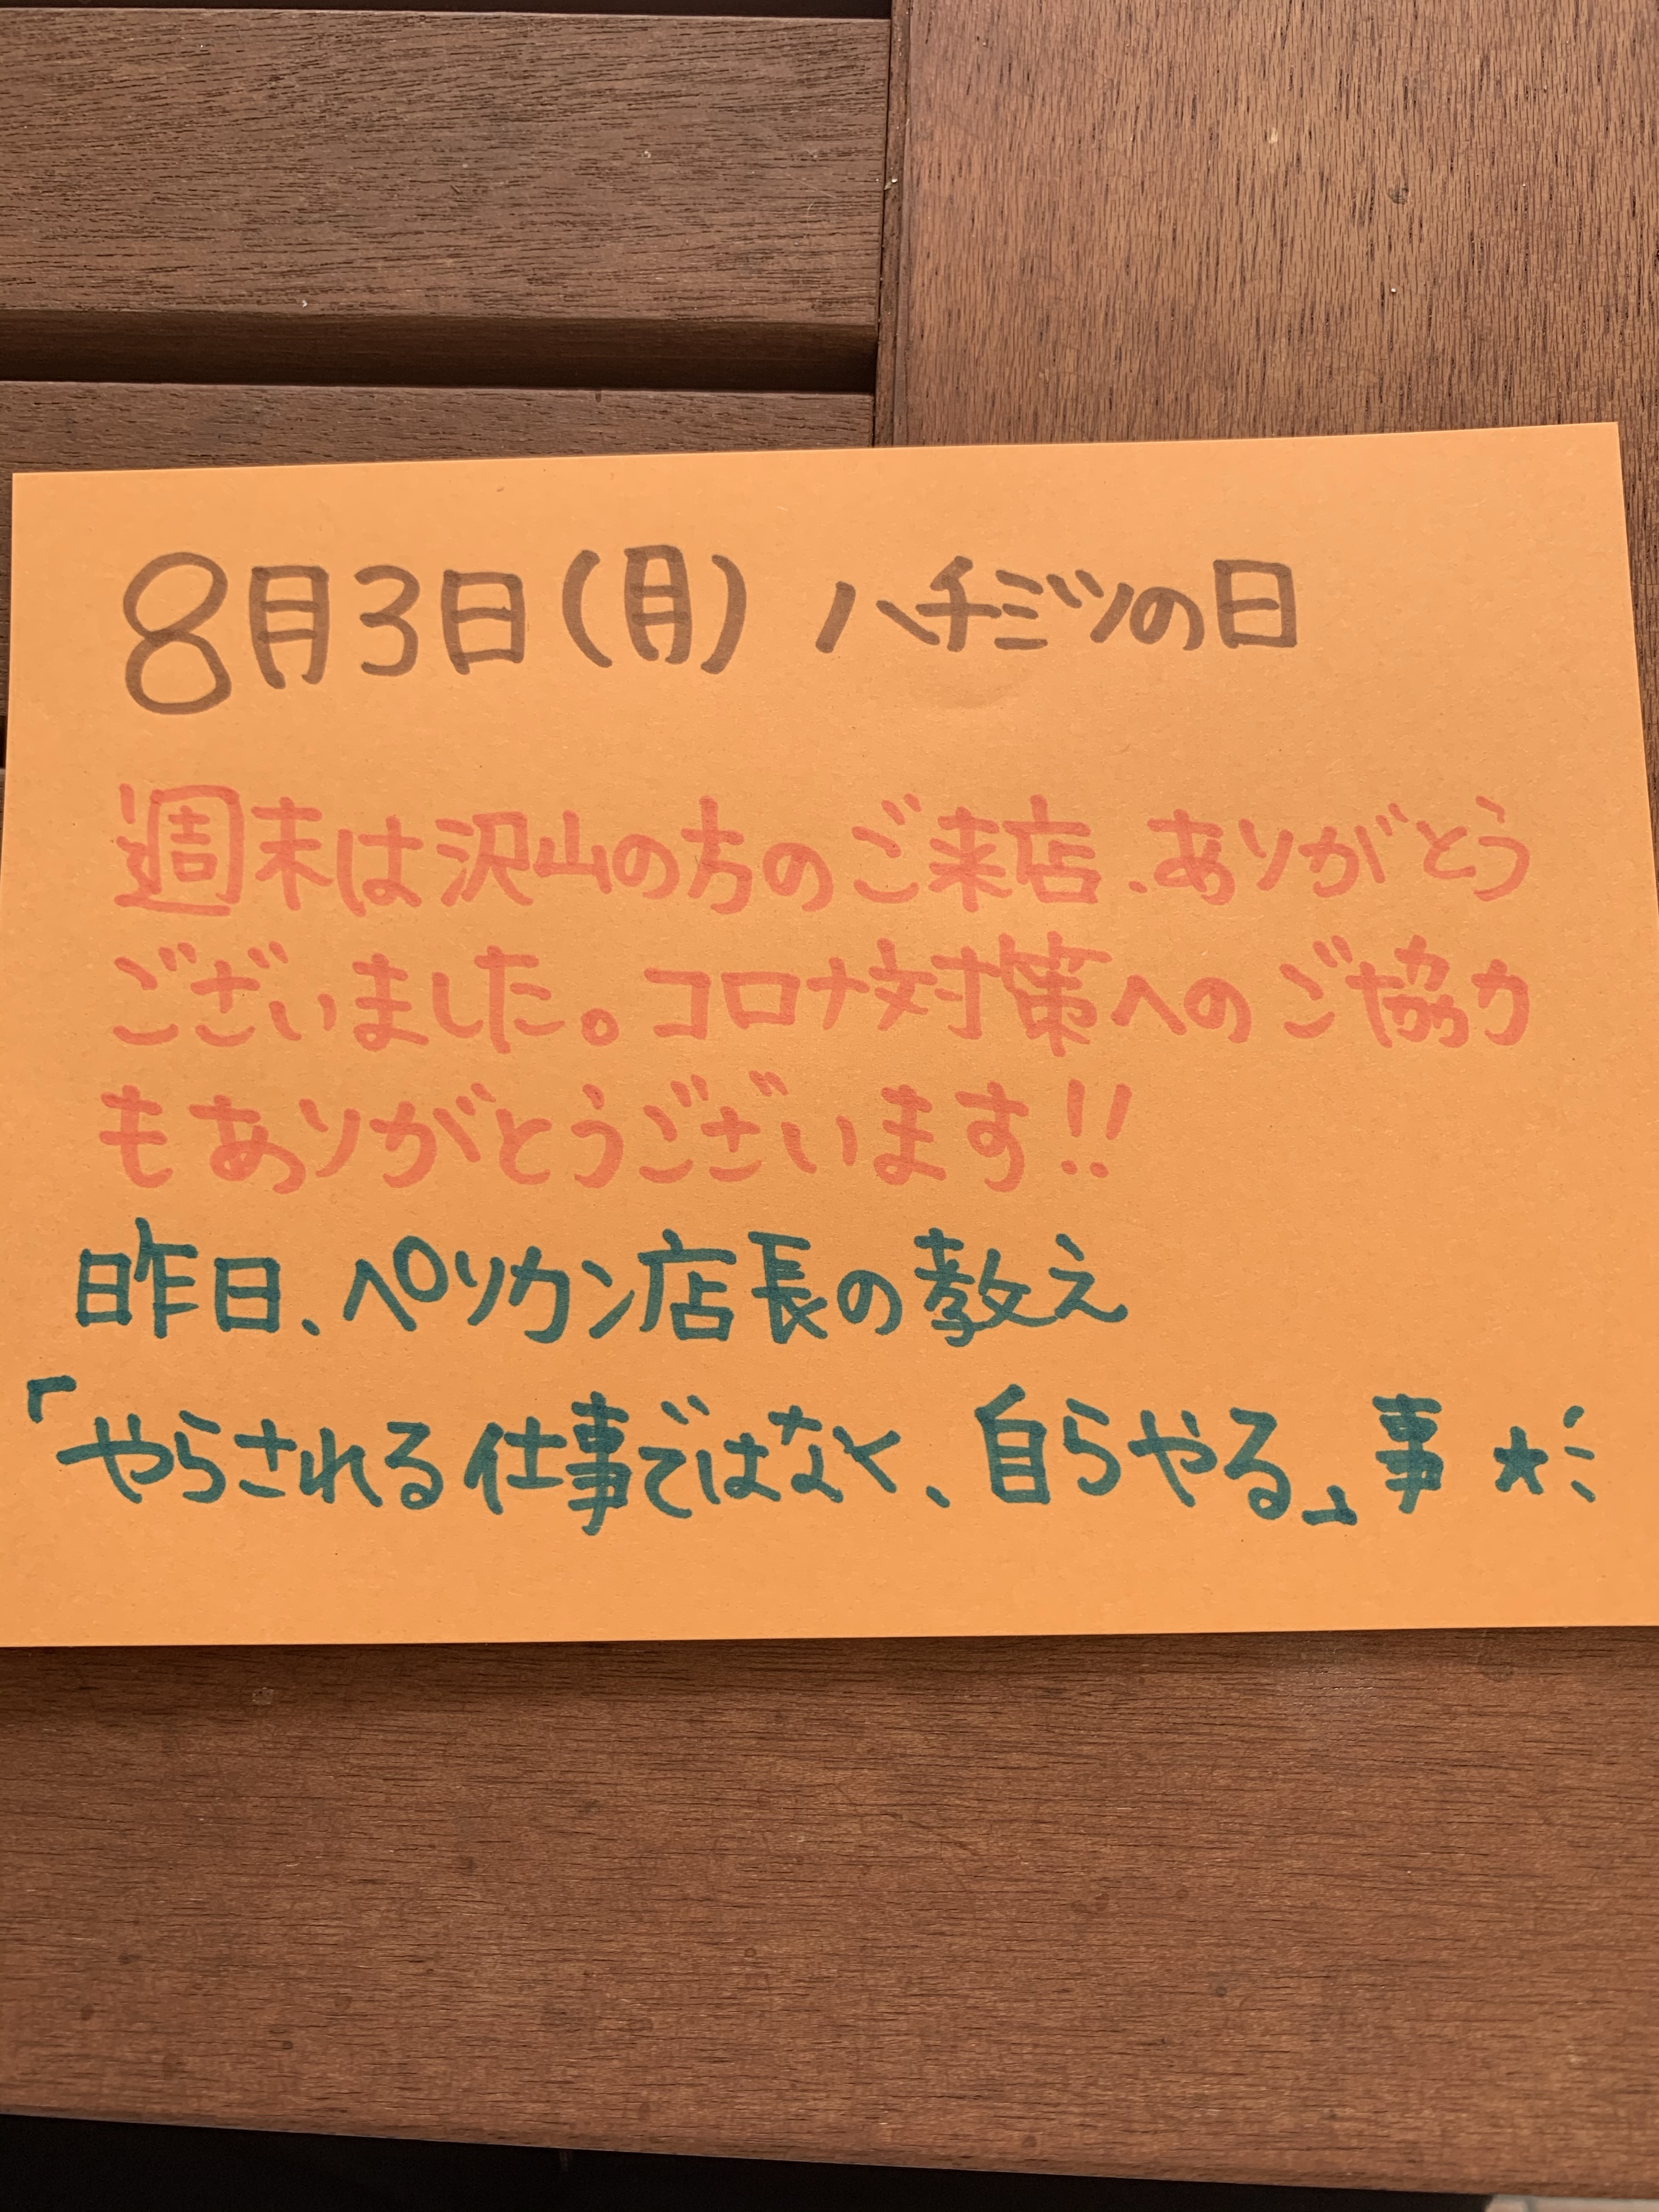 8月3日(月) ハチミツの日
週末は沢山の方のご来店、ありがとう
ございました。コロナ対策へのご協力
もありがとうございます!!
昨日、ペリカン店長の教え
「やらされる仕事ではなく、自らやる」事★